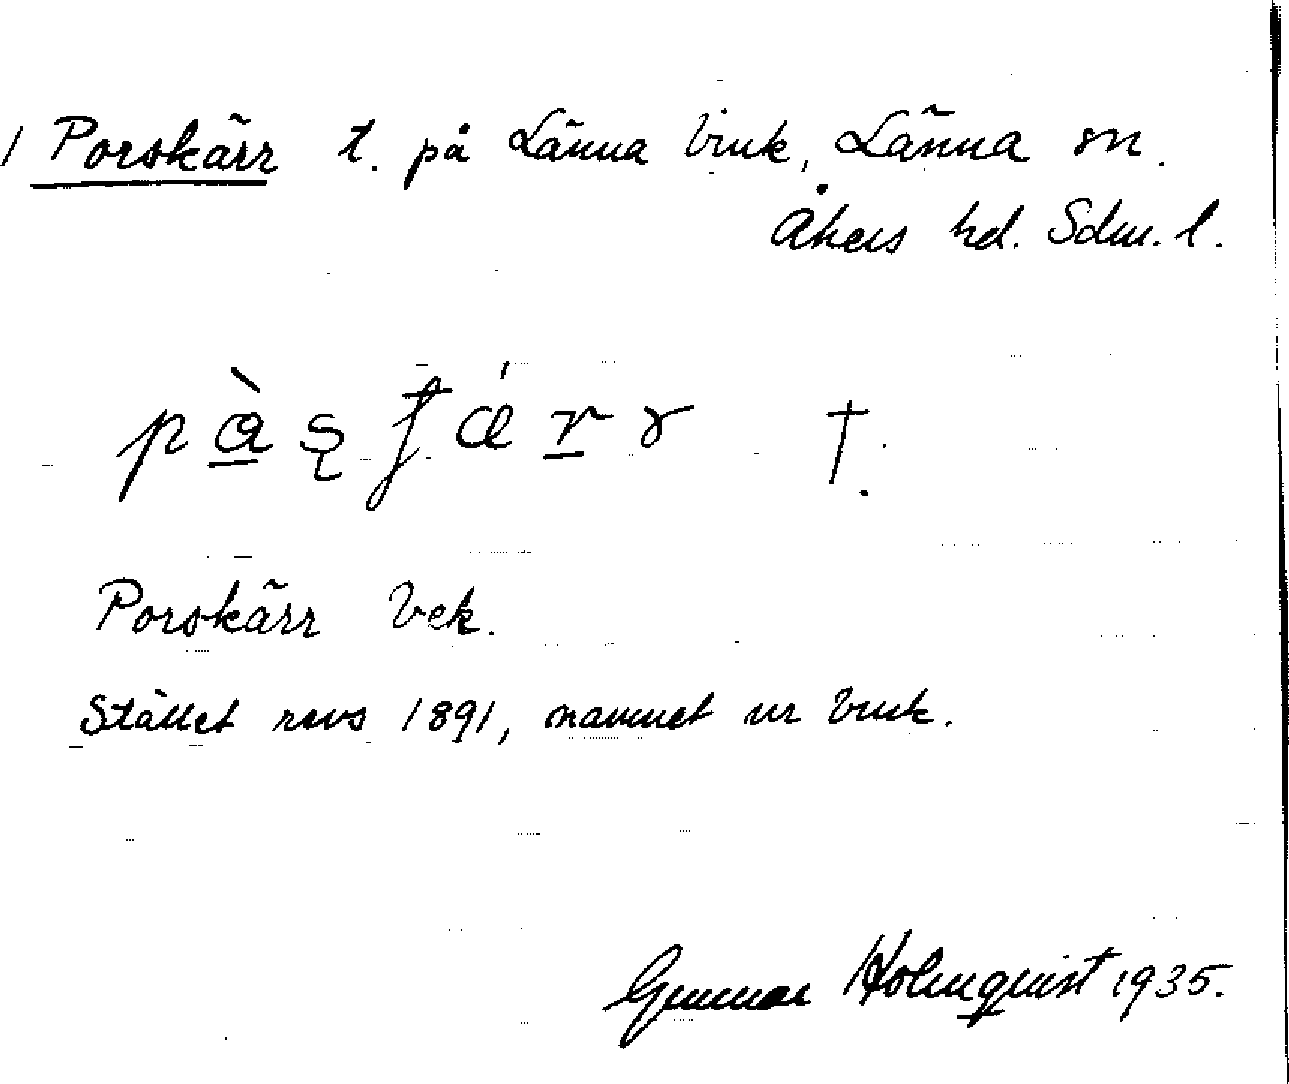 / Porskärr t. på Länna bruk, Länna sn.
Åkers hd. Sdm. l.
†.
Porskärr bek.
Stället revs 1891, namnet ur bruk.
Gunnar Holmquist 1935.